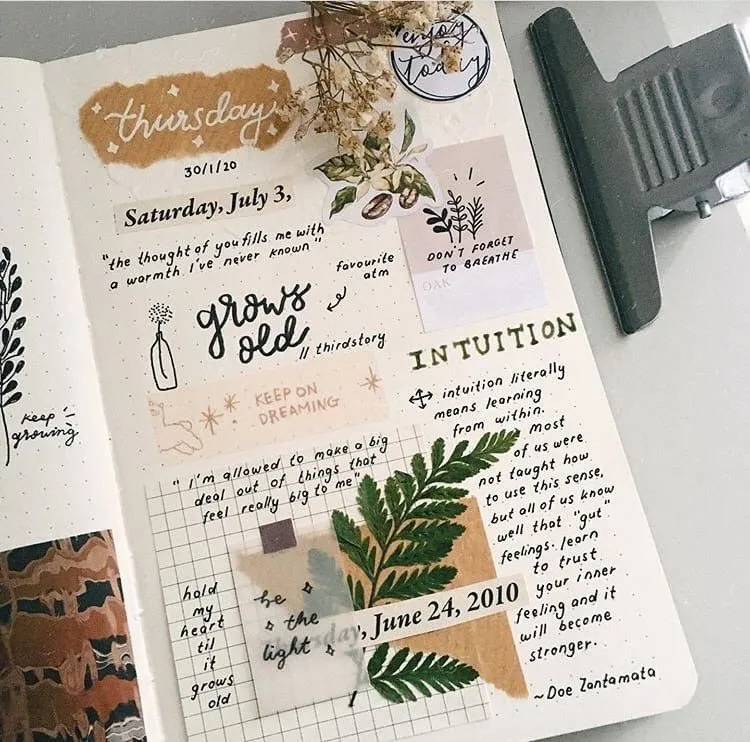 enjoy
today
thursday
30/1/20
Saturday, July 3,
"the thought of you fills me with
a warmth I've never known"
favourite
atm
grows
old
// thirdstory
DON'T FORGET
TO BREATHE
OAK
KEEP ON
DREAMING
keep
growing
"I'm allowed to make a big
deal out of things that
feel really big to me"
hold
my
heart
til
it
grows
old
be
the
light
Thursday, June 24, 2010
INTUITION
intuition literally
means learning
from within.
most
of us were
not taught how
to use this sense,
but all of us know
well that "gut"
feelings. learn
to trust
your inner
feeling and it
will become
stronger.
~Doe Zantamata